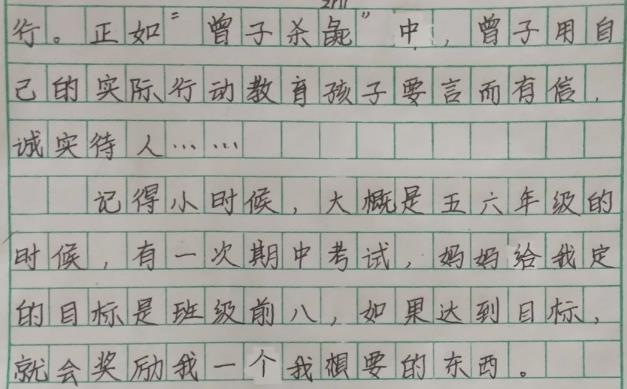 行。正如“曾子杀彘”中，曾子用自
己的实际行动教育孩子要言而有信，
诚实待人……
记得小时候，大概是五六年级的
时候，有一次期中考试，妈妈给我定
的目标是班级前八，如果达到目标，
就会奖励我一个我想要的东西。